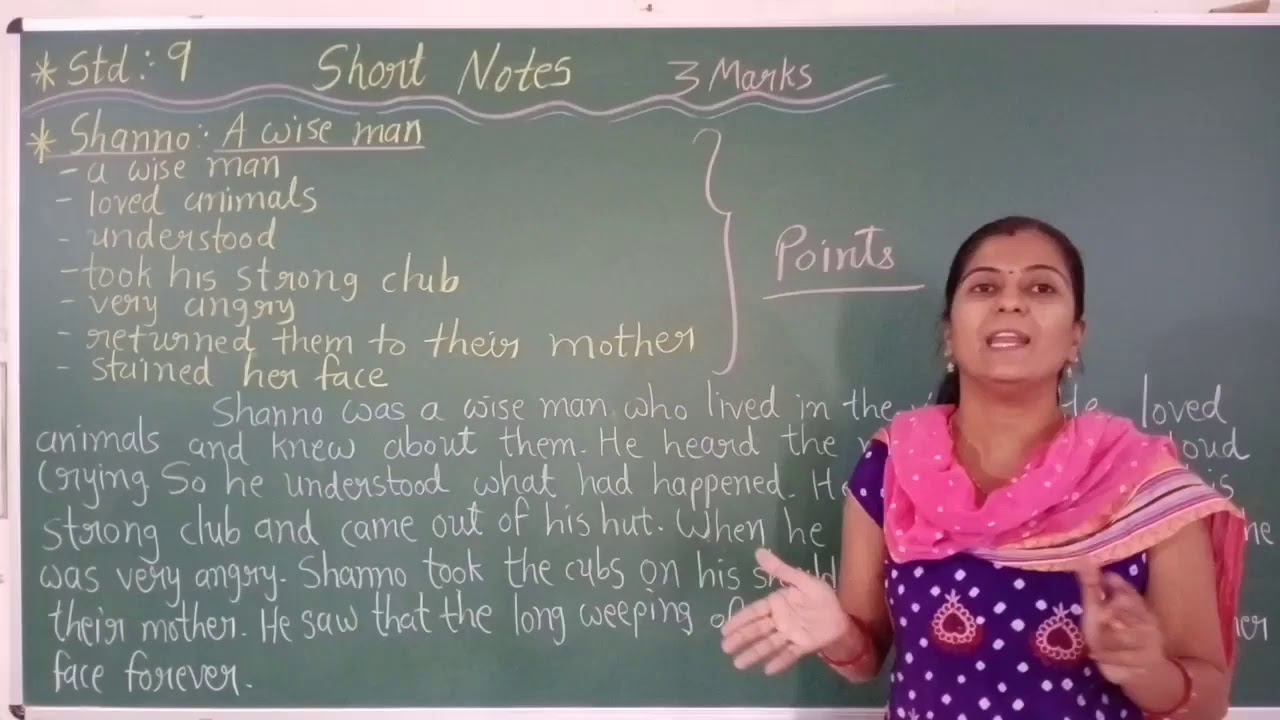 * Std: 9 Short Notes 3 Marks
* Shanno: A wise man
- a wise man
- loved animals
- understood
- took his strong club
- very angry
- returned them to their mother
- stained her face
Points
Shanno was a wise man who lived in the He loved
animals and knew about them. He heard the loud
Crying So he understood what had happened. He is
strong club and came out of his hut. When he
was very angry. Shanno took the cubs on his
their mother. He saw that the long weeping
face forever.